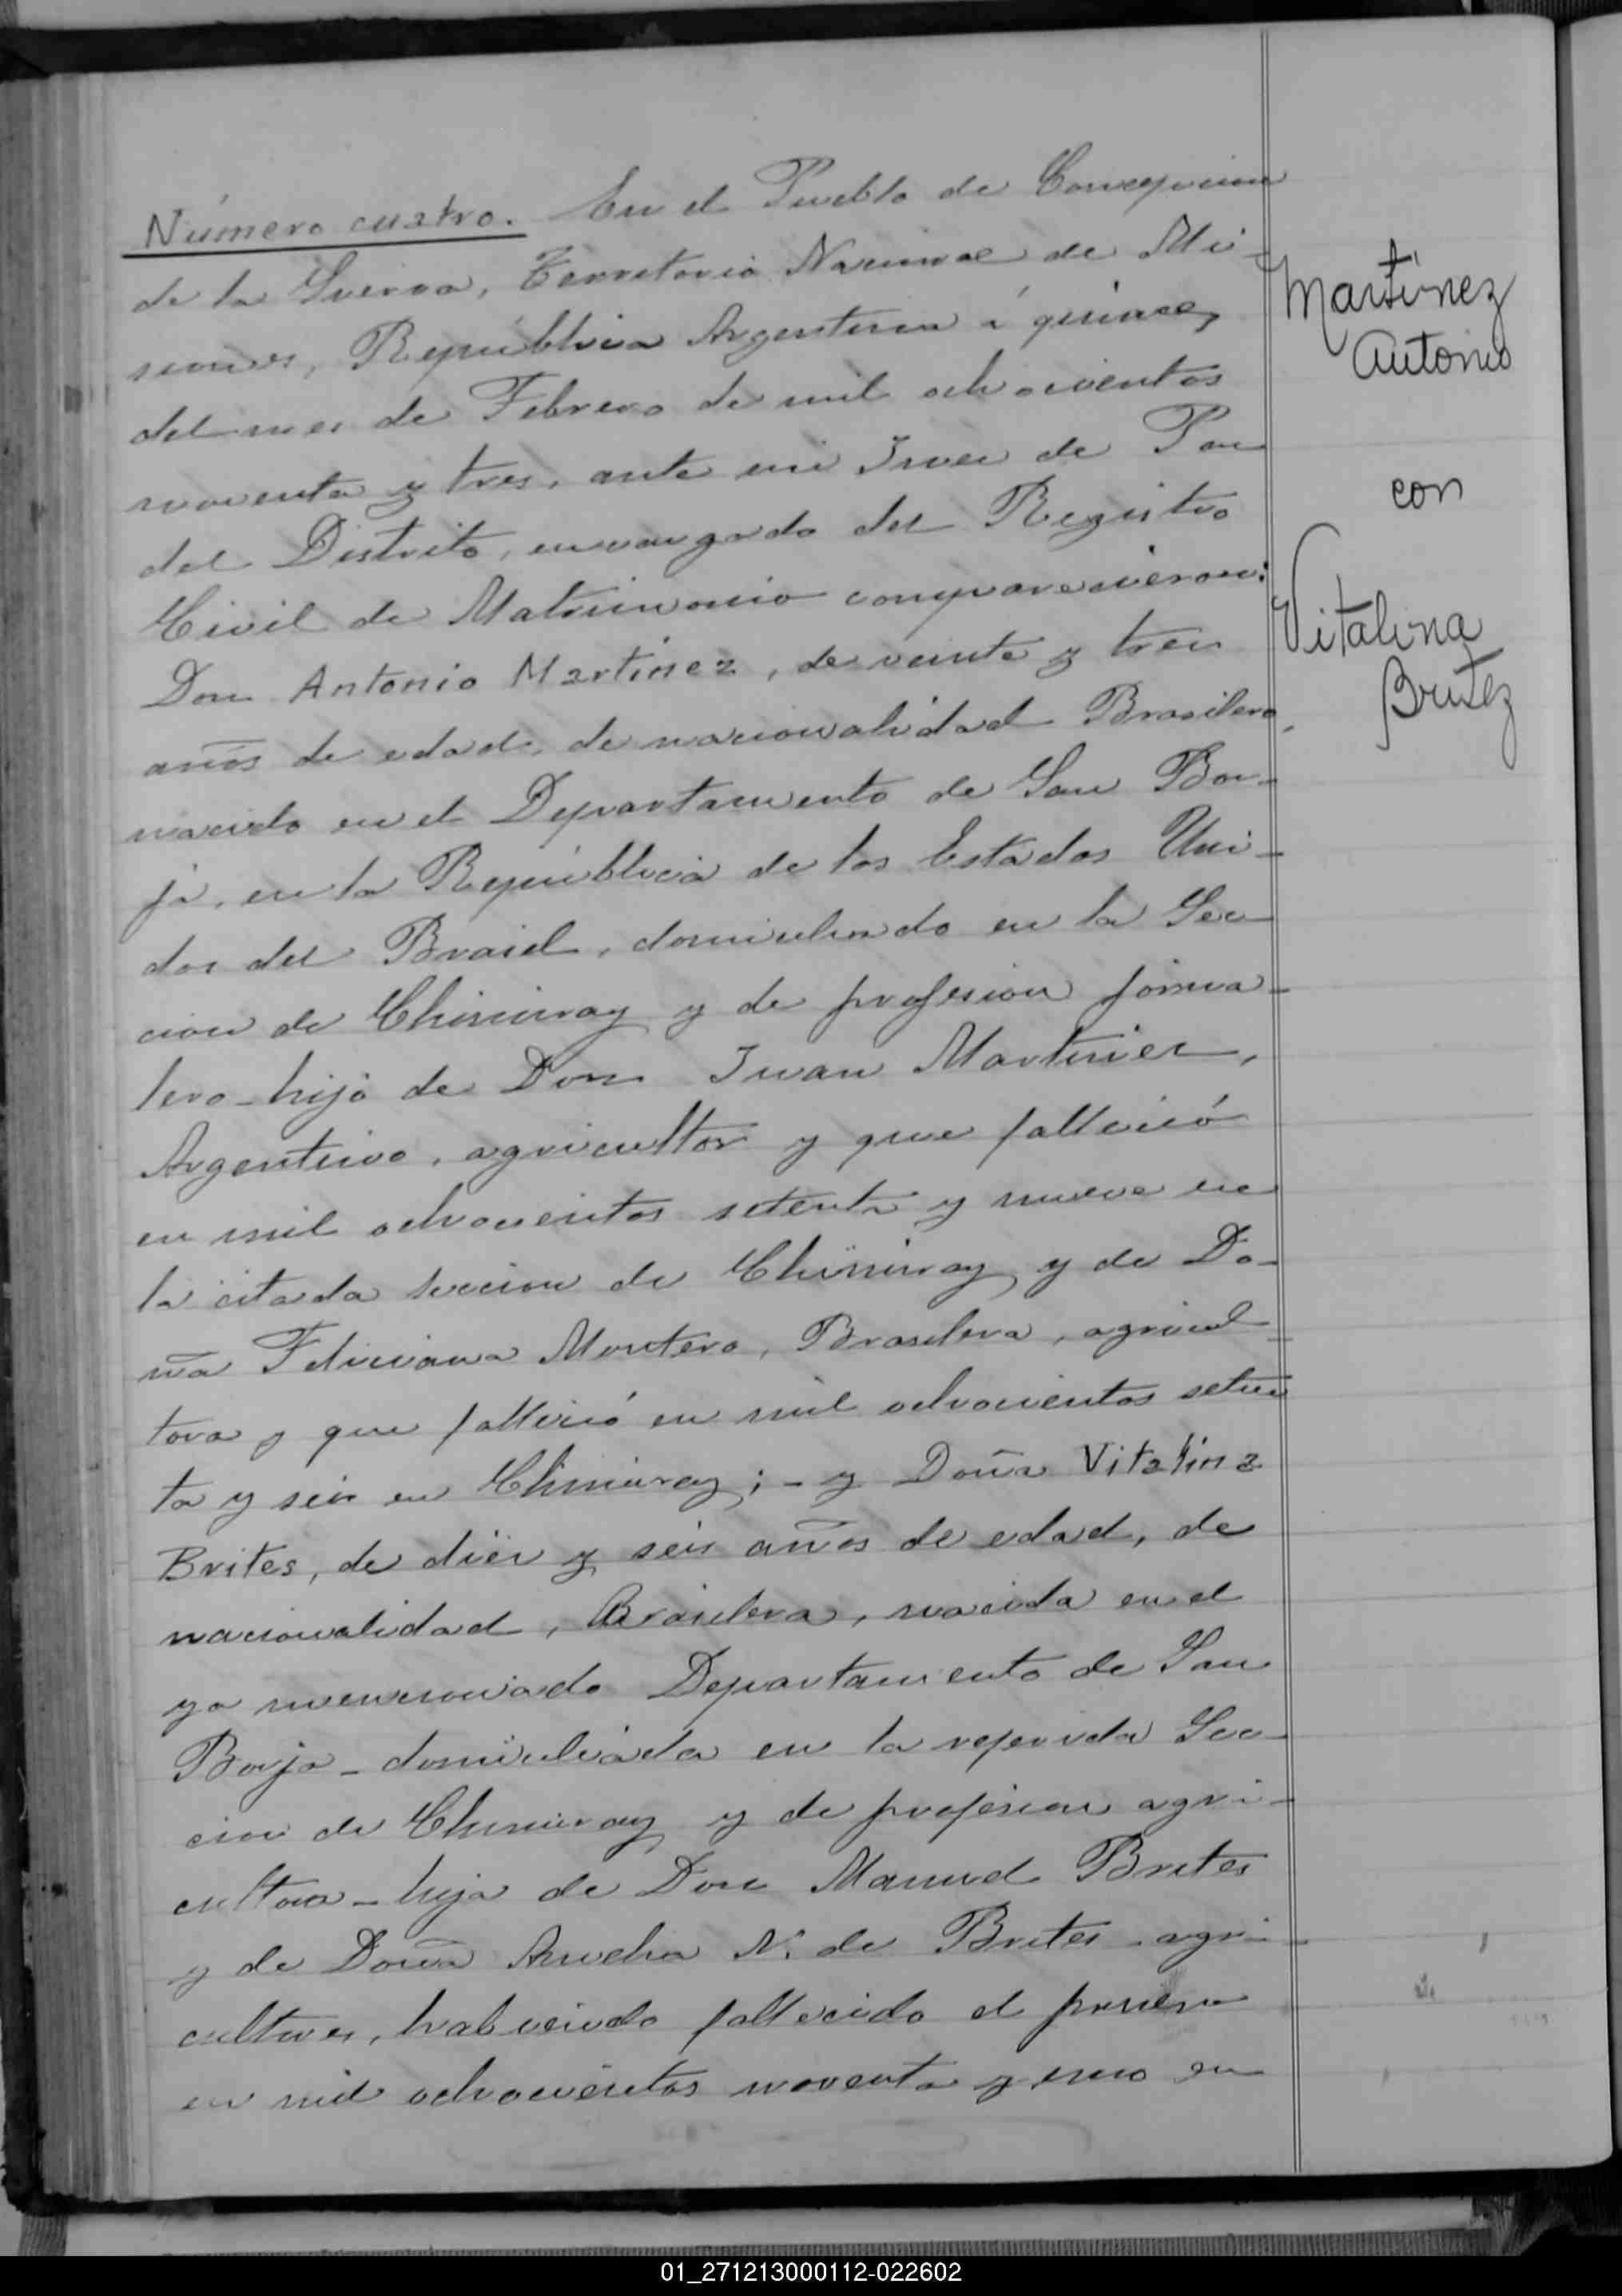 Número cuatro. En el Pueblo de Concepcion
de la Sierra, Territorio Nacional de Mi-
siones, República Argentina á quince,
del mes de Febrero de mil ochocientos
noventa y tres, ante mi Juez de Paz
del Distrito, encargado del Registro
Civil de Matrimonio comparecieron:
Don Antonio Martínez, de veinte y tres
años de edad, de nacionalidad Brasilera,
nacido en el Departamento de San Bor-
ja, en la República de los Estados Uni-
dos del Brasil, domiciliado en la Sec-
cion de Chimiray y de profesion jorna-
lero - hijo de Don Juan Martinez,
Argentino, agricultor y que falleció
en mil ochocientos setenta y nueve en
la citada seccion de Chimiray y de Do-
ña Feliciana Montero, Brasilera, agricul-
tora y que falleció en mil ochocientos seten
ta y seis en Chimiray; - y Doña Vitalina
Brites, de diez y seis años de edad, de
nacionalidad, Brasilera, nacida en el
ya mencionado Departamento de San
Borja - domiciliada en la referida Sec-
cion de Chimiray y de profesion agri-
cultora - hija de Don Manuel Brites
y de Doña N. de Brites - agri-
cultores, habiendo fallecido el primero
en mil ochocientos noventa y uno en
Martínez
Antonio
con
Vitalina
Britez
01_271213000112-022602